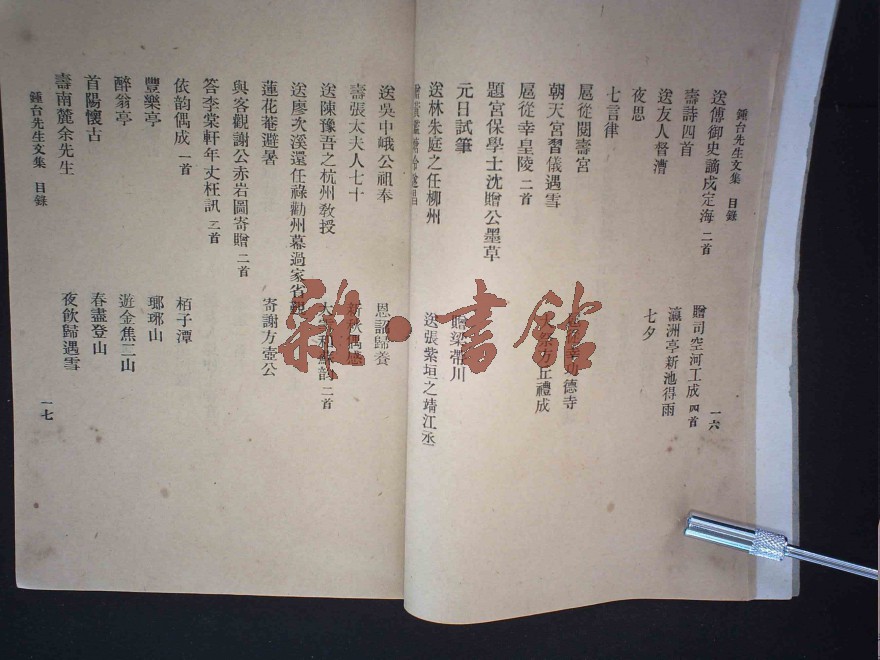 鍾台先生文集 目錄 一六
送傅御史謫戍定海 二首 贈司空河工成 四首
壽詩四首 瀛洲亭新池得雨
送友人督漕 七夕
夜思
七言律
扈從閱壽宮 功德寺
朝天宮習儀遇雪 方丘禮成
扈從幸皇陵 二首
題宮保學士沈贈公墨草
元日試筆 贈梁帶川
送林朱庭之任柳州 送張紫垣之靖江丞
送吳中峨公祖奉 恩詔歸養
壽張太夫人七十
送陳豫吾之杭州敎授 二首
送廖次溪還任祿勸州幕過家省親
蓮花菴避暑 寄謝方壺公
與客觀謝公赤岩圖寄贈 二首
答李棠軒年丈枉訊 二首
依韵偶成 一首 栢子潭
豐樂亭 瑯琊山
醉翁亭 遊金焦二山
首陽懷古 春盡登山
壽南麓余先生 夜飲歸遇雪
鍾台先生文集 目錄 一七
雜·書館